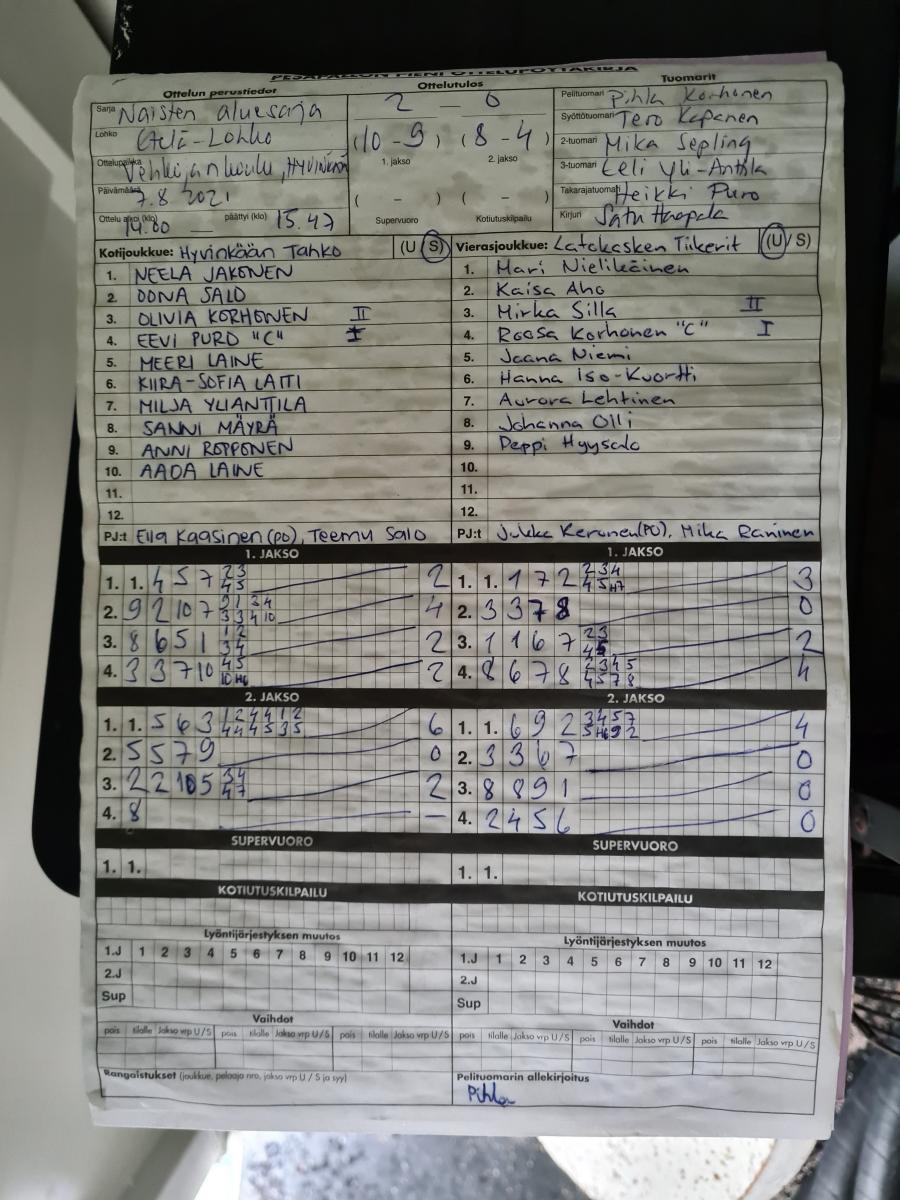 PESÄPALLON PIENI OTTELUPÖYTÄKIRJA
Ottelun perustiedot
Ottelutulos
Tuomarit
Sarja Naisten aluesarja
2 — 0
Pelituomari Pihla Korhonen
Lohko Etelä-Lohko
(10 - 9) (8 - 4)
Syöttötuomari Tero Kapanen
Ottelupaikka Vehkojan koulu, HYVINKÄÄ
1. jakso 2. jakso
2-tuomari Mika Sepling
Päivämäärä 7.8 2021
( - ) ( - )
3-tuomari Eeli Yli-Anttila
Takarajatuomari Heikki Puro
Ottelu alkoi (klo) 14.00 — päättyi (klo) 15.47
Supervuoro Kotiutuskilpailu
Kirjuri Satu Haapala
Kotijoukkue: Hyvinkään Tahko (U/S)
Vierasjoukkue: Latokasken Tiikerit (U/S)
1. NEELA JAKONEN
1. Mari Nielikäinen
2. OONA SALO
2. Kaisa Aho
3. OLIVIA KORHONEN II
3. Mirka Silla II
4. EEVI PURO "C" I
4. Roosa Korhonen "C" I
5. MEERI LAINE
5. Jaana Niemi
6. KIIRA-SOFIA LAITI
6. Hanna Iso-Kuortti
7. MILJA YLIANTTILA
7. Aurora Lehtinen
8. SANNI MÄYRÄ
8. Johanna Olli
9. ANNI ROPPONEN
9. Peppi Hyysalo
10. AADA LAINE
10.
11.
11.
12.
12.
PJ:t Ella Kaasinen (PO), Teemu Salo
PJ:t Jukka Kerunen (PO), Mika Raninen
1. JAKSO
1. JAKSO
1. 1. 4 5 7 2 3 4 5 2
1. 1. 1 7 2 2 3 4 4 5 H7 3
2. 9 2 10 7 4
2. 3 3 7 8 0
3. 8 6 5 1 1 2 3 4 2
3. 1 1 6 7 2 3 4 5 2
4. 3 3 7 10 4 5 10 H6 2
4. 8 6 7 8 2 3 4 5 4 5 7 8 4
2. JAKSO
2. JAKSO
1. 1. 5 6 3 1 2 4 4 1 2 4 4 4 5 3 5 6
1. 1. 6 9 2 3 4 5 7 5 H6 9 2 4
2. 5 5 7 9 0
2. 3 3 6 7 0
3. 2 2 10 5 3 4 4 7 2
3. 8 8 9 1 0
4. 8 —
4. 2 4 5 6 0
SUPERVUORO
SUPERVUORO
1. 1.
1. 1.
KOTIUTUSKILPAILU
KOTIUTUSKILPAILU
Lyöntijärjestyksen muutos
Lyöntijärjestyksen muutos
1.J 1 2 3 4 5 6 7 8 9 10 11 12
1.J 1 2 3 4 5 6 7 8 9 10 11 12
2.J
2.J
Sup
Sup
Vaihdot
Vaihdot
pois tilalle Jakso vrp U/S pois tilalle Jakso vrp U/S pois tilalle Jakso vrp U/S
pois tilalle Jakso vrp U/S pois tilalle Jakso vrp U/S pois tilalle Jakso vrp U/S
Rangaistukset (joukkue, pelaaja nro, jakso vrp U / S ja syy)
Pelituomarin allekirjoitus
Pihla